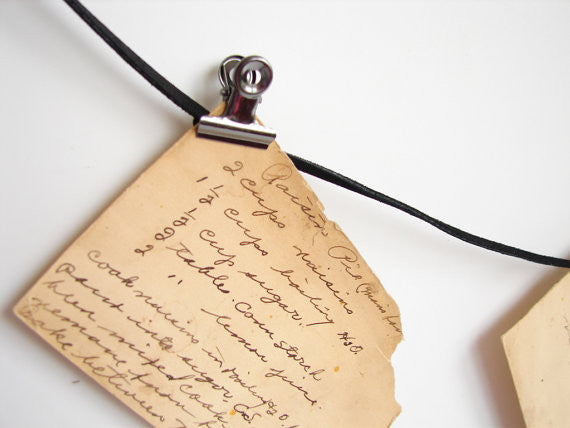 Raisin Pie
2 cups raisins
1 1/2 cups boiling H2O.
1/2 cup sugar.
2 tables. corn starch
2 " lemon juice.
cook raisins in boiling H2O.
pour into sugar. C.S.
mixed cook
lemon
Bake between